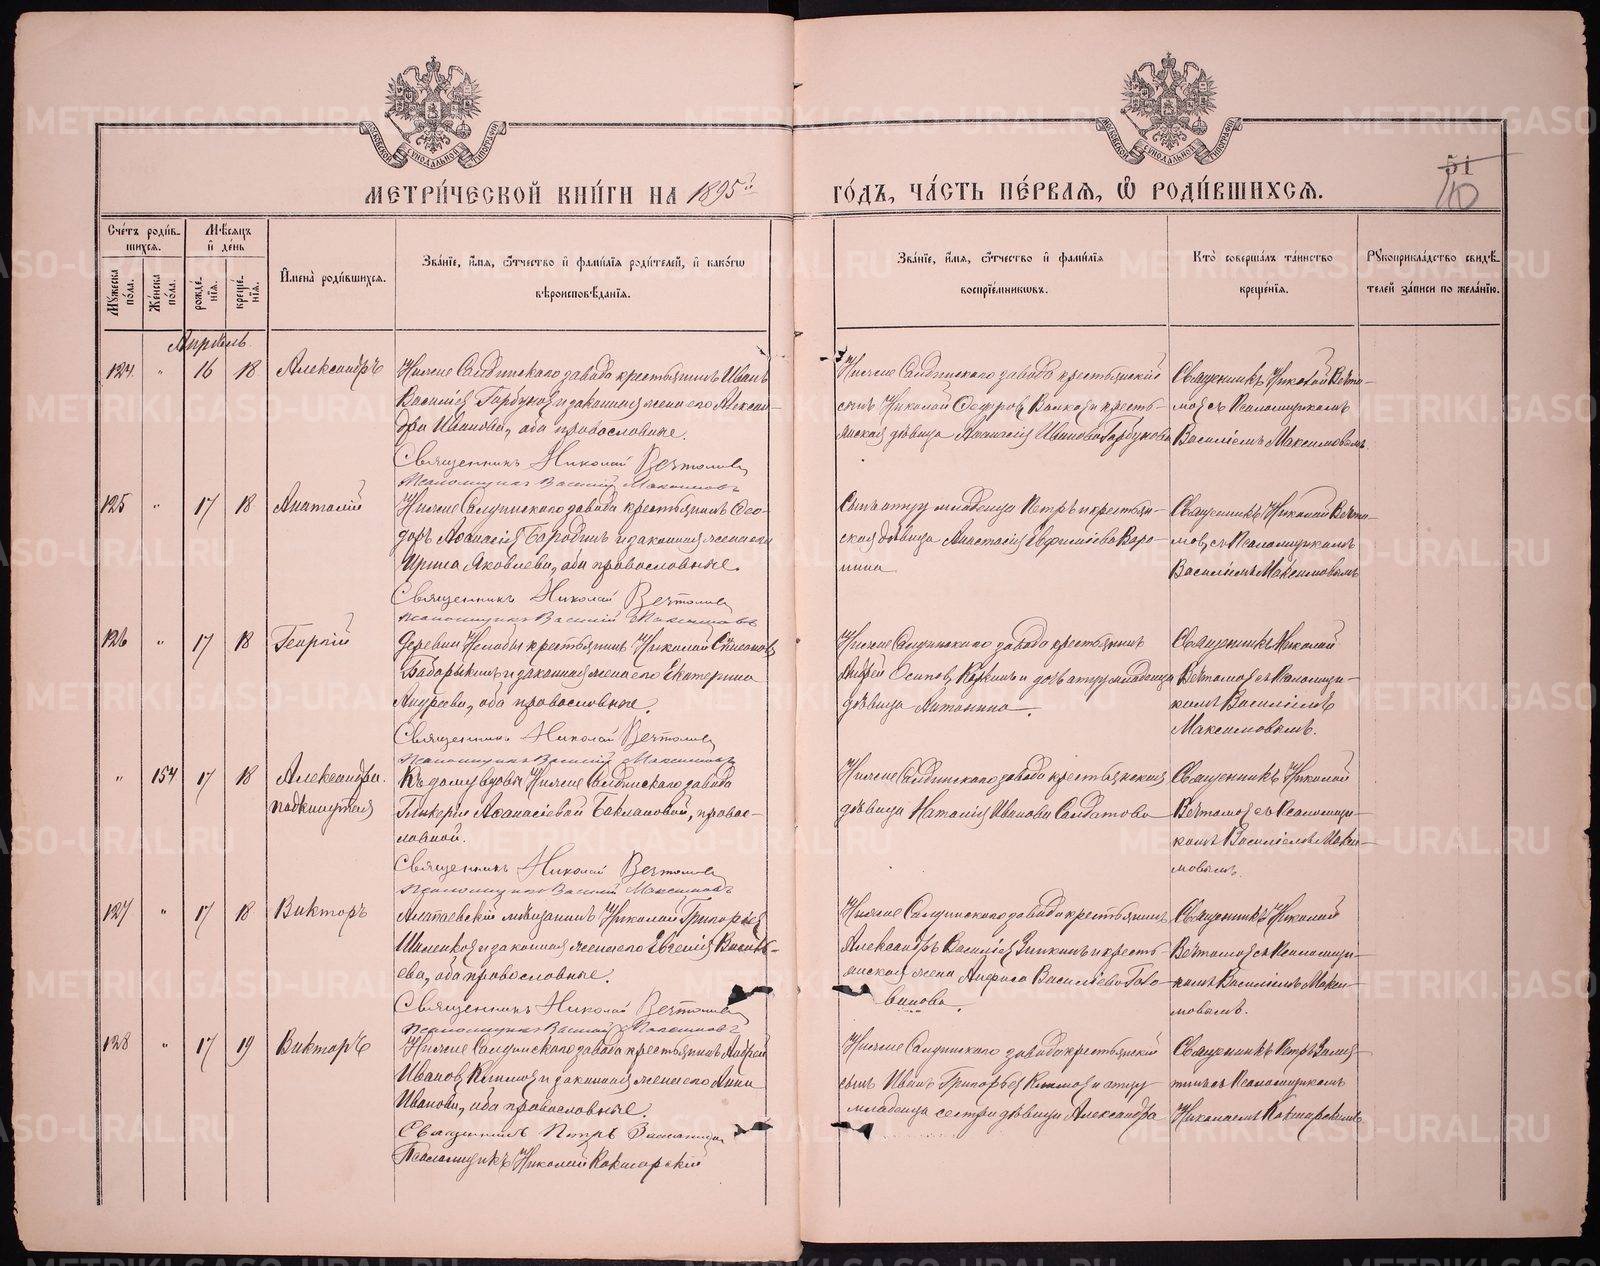 МЕТРИ́ЧЕСКОЙ КНИ́ГИ НА 1895й
ГО́ДЪ, ЧА́СТЬ ПЕ́РВАЯ, Ѿ РОДИ́ВШИХСЯ.
51
110
Сче́тъ роди́в-
шихся.
Мѣсяцъ
и де́нь
Мужеска
по́ла.
Же́нска
по́ла.
рожде́-
нія.
креще́-
нія.
Имена̀ роди́вшихся.
Зва́ніе, имя, отчество и фами́лія роди́телей, и како́гѡ
вѣроисповѣданія.
Зва́ніе, имя, отчество и фами́лія
воспріе́мниковъ.
Кто̀ соверша́лъ та́инство
креще́нія.
Рукоприкла́дство свидѣ-
телей за́писи по жела́нію.
Апрѣль
124. " 16 18 Александръ
Нижне Салдинскаго завода крестьянинъ Иванъ
Васильевъ Горбуновъ и законная жена его Алексан-
дра Иванова, оба православные.
Священникъ Николай
Псаломщикъ Василій Максимовъ
Нижне Салдинскаго завода крестьянскій
сынъ Николай Федоровъ Волковъ и кресть-
янская дѣвица Анастасія Иванова Горбунова
Священникъ Николай
съ Псаломщикомъ
Василіемъ Максимовымъ
125 " 17 18 Анатолій
Нижне Салдинскаго завода крестьянинъ Ѳео-
доръ Аѳанасьевъ Бородинъ и законная жена его
Ирина Яковлева, оба православные.
Священникъ Николай
Псаломщикъ Василій Максимовъ
Сынъ отцу младенца Петръ и крестьян-
ская дѣвица Анастасія Евфиміева Воро-
нина
Священникъ Николай
съ Псаломщикомъ
Василіемъ Максимовымъ
126 " 17 18 Георгій
Деревни Нелобы крестьянинъ Николай
Бабарыкинъ и законная жена его Екатерина
Андреева, оба православные.
Священникъ Николай
Псаломщикъ Василій Максимовъ
Нижне Салдинскаго завода крестьянинъ
Андрей Осиповъ и дочь отцу младенца
дѣвица Антонина.
Священникъ Николай
съ Псаломщи-
комъ Василіемъ
Максимовымъ.
" 154 17 18 Александра.
подкинутая
Къ дому вдовы Нижне Салдинскаго завода
Гликеріи Аѳанасіевой Баклановой, правос-
лавной.
Священникъ Николай
Псаломщикъ Василій Максимовъ
Нижне Салдинскаго завода крестьянская
дѣвица Наталія Иванова Солдатова
Священникъ Николай
съ Псаломщи-
комъ Василіемъ Макси-
мовымъ.
127 " 17 18 Викторъ
Алапаевскій мѣщанинъ Николай Григорьевъ
Шиленковъ и законная жена его Евгенія Василь-
ева, оба православные.
Священникъ Николай
Псаломщикъ Василій Максимовъ
Нижне Салдинскаго завода крестьянинъ
Александръ Васильевъ Зыкинъ и кресть-
янская жена Анфиса Васильева Голо-
винова.
Священникъ Николай
съ Псаломщи-
комъ Василіемъ Макси-
мовымъ.
128 " 17 19 Викторъ
Нижне Салдинскаго завода крестьянинъ Андрей
Ивановъ Климовъ и законная жена его Анна
Иванова, оба православные.
Священникъ Петръ
Псаломщикъ Николай Кокшарскій
Нижне Салдинскаго завода крестьянскій
сынъ Иванъ Григорьевъ Климовъ и отцу
младенца сестра дѣвица Александра
Священникъ Петръ
съ Псаломщикомъ
Николаемъ Кокшарскимъ
METRIKI.GASO-URAL.RU